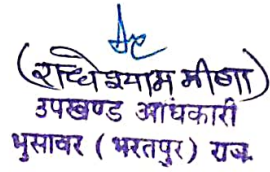 (राधेश्याम मीणा)
उपखण्ड अधिकारी
भुसावर (भरतपुर) राज.